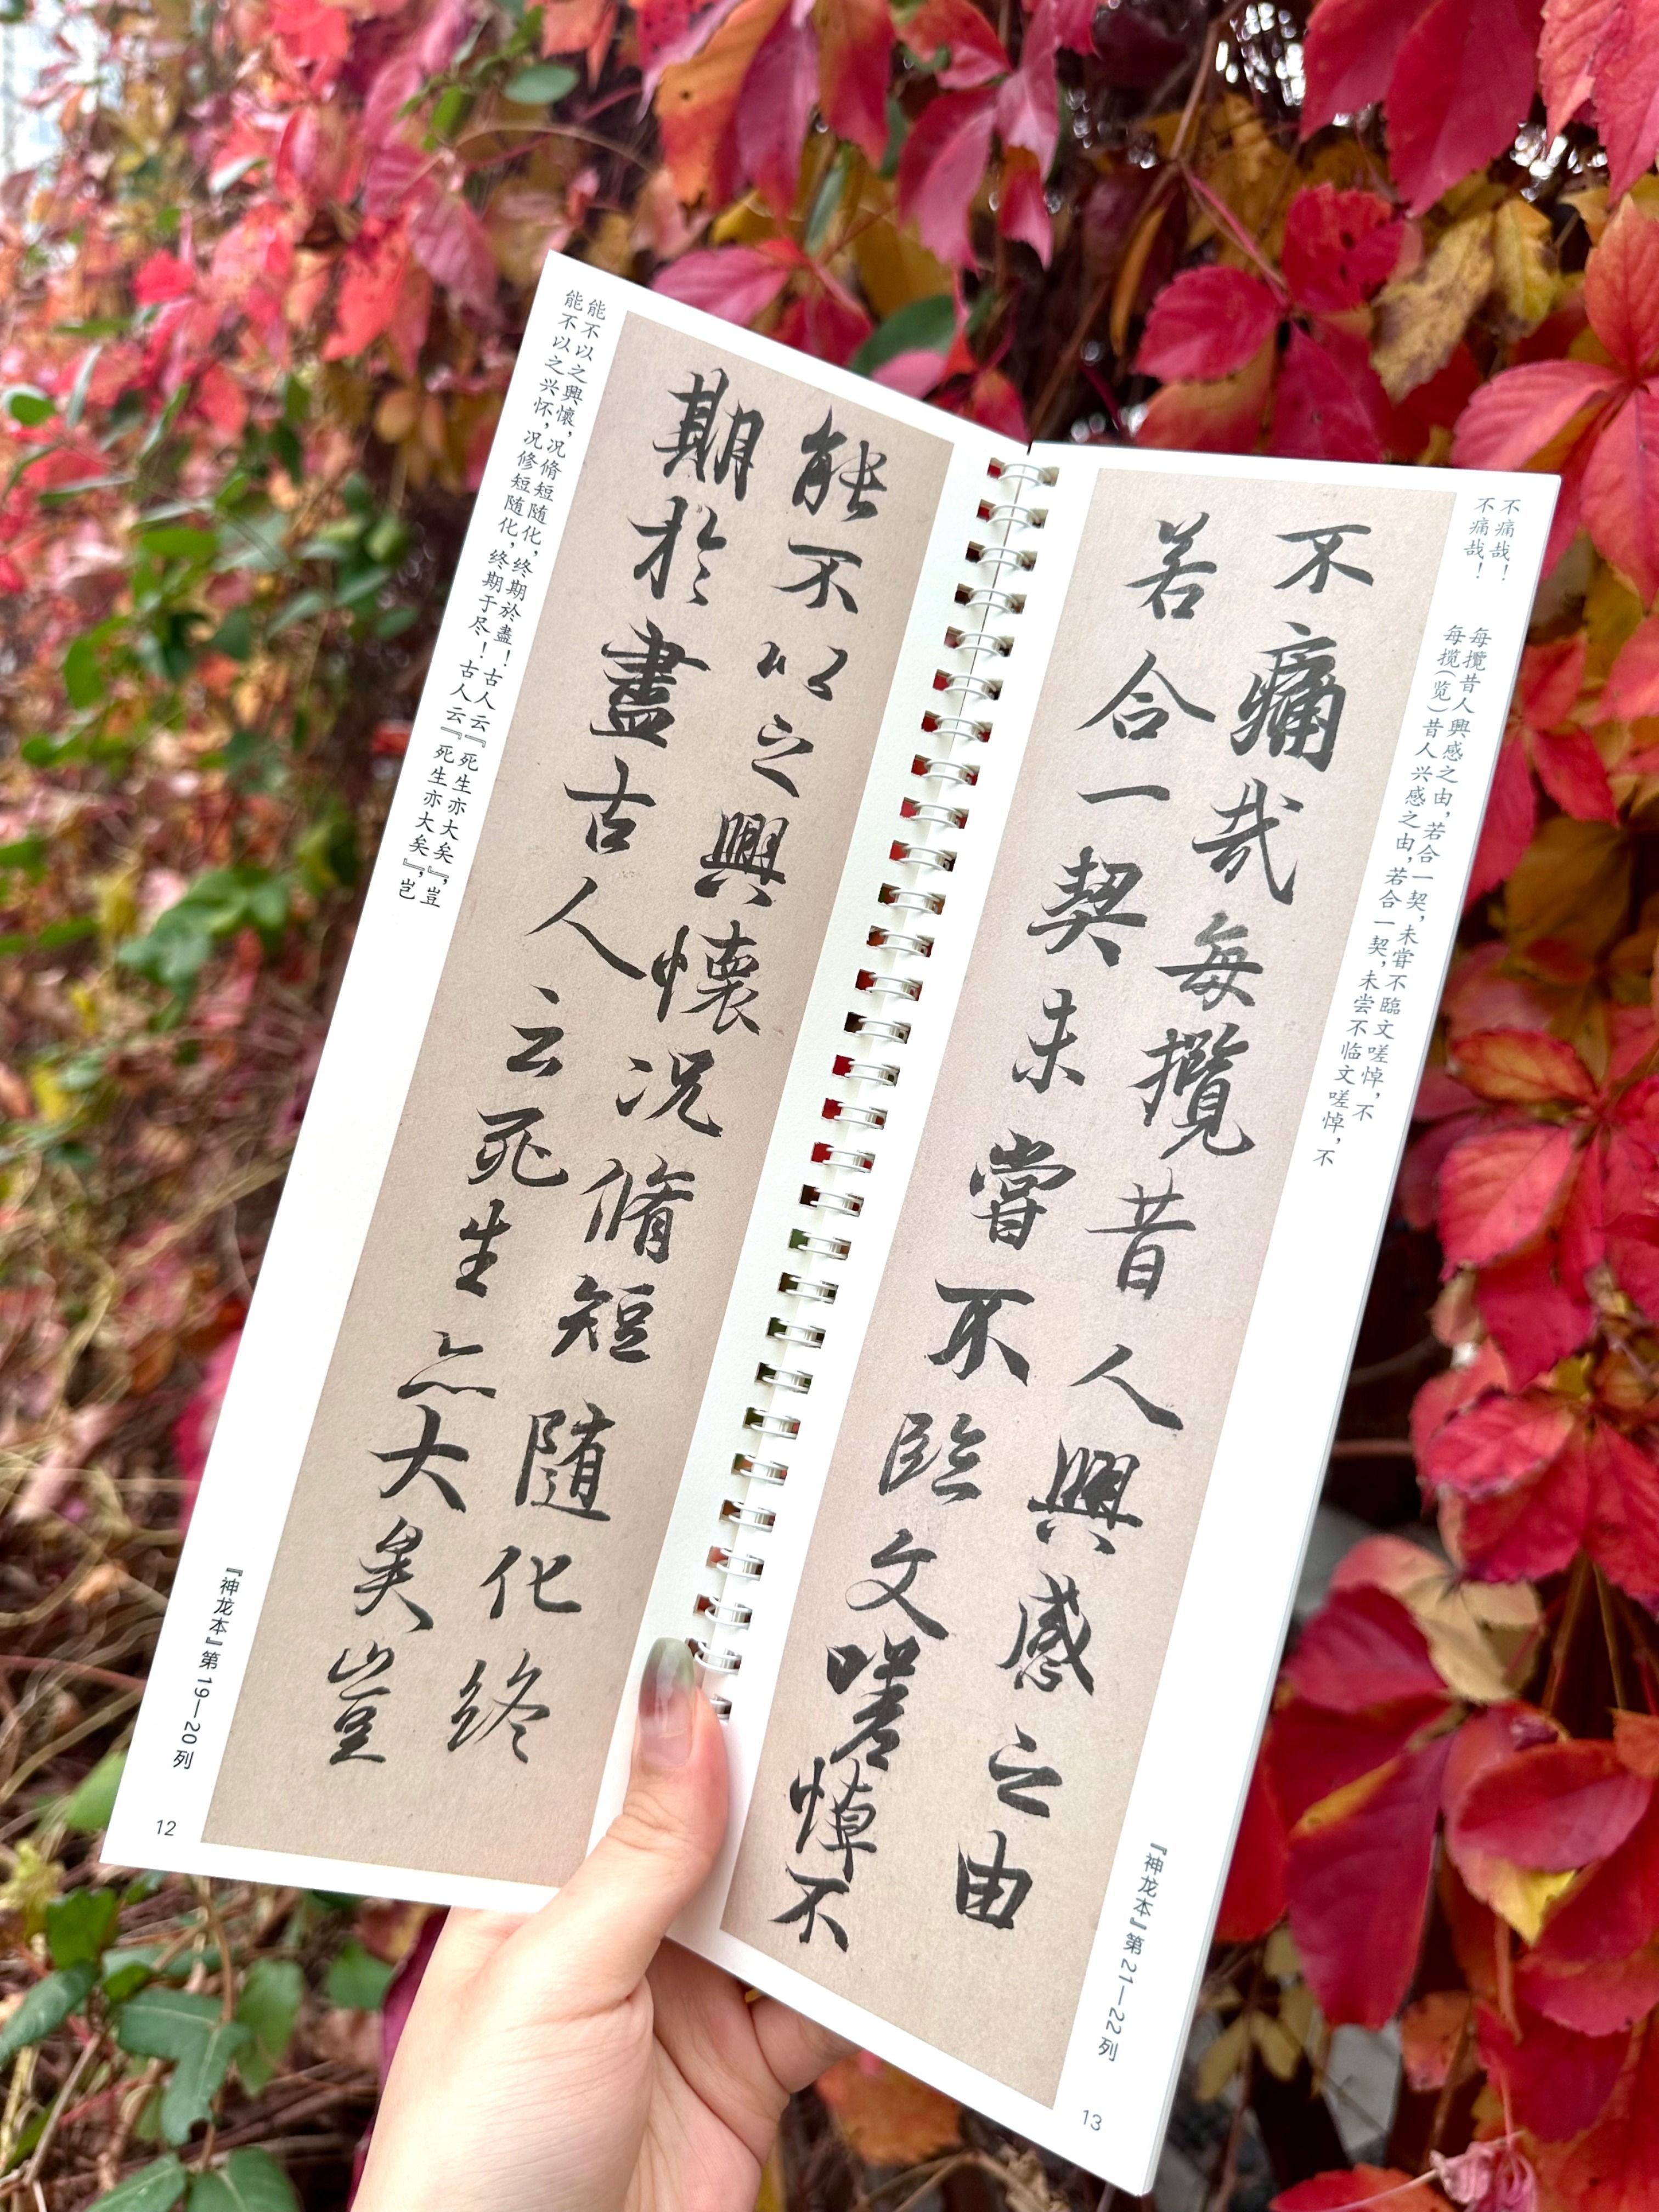 能不以之興懷况脩短随化终
期於盡古人云死生亦大矣豈
能不以之興懷，况脩短随化，终期於盡！古人云『死生亦大矣』，豈
能不以之兴怀，况修短随化，终期于尽！古人云『死生亦大矣』，岂
『神龙本』第19—20列
12
不痛哉每攬昔人興感之由
若合一契未嘗不臨文嗟悼不
不痛哉！ 每攬昔人興感之由，若合一契，未嘗不臨文嗟悼，不
不痛哉！ 每揽（览）昔人兴感之由，若合一契，未尝不临文嗟悼，不
『神龙本』第21—22列
13